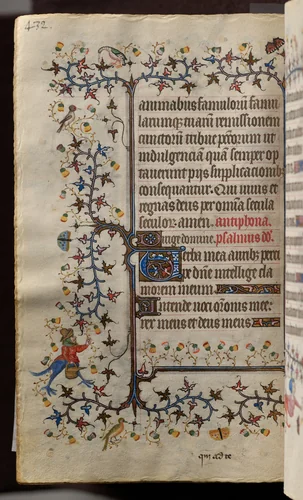 432.
animabus famuloru famu
larumq; tuaru remissionem
cunctoru tribue pctoru ut
indulgencia qua semper op
tauerunt pijs supplicationib;
consequantur. Qui uiuis et
regnas deus per omnia secula
seculor. amen. antiphona.
Dirige domine. psalmus dd.
Uerba mea aurib; perci
pe dne intellige cla
morem meum
Intende uoci oronis mee
rex meus et deus meus
qm ad te